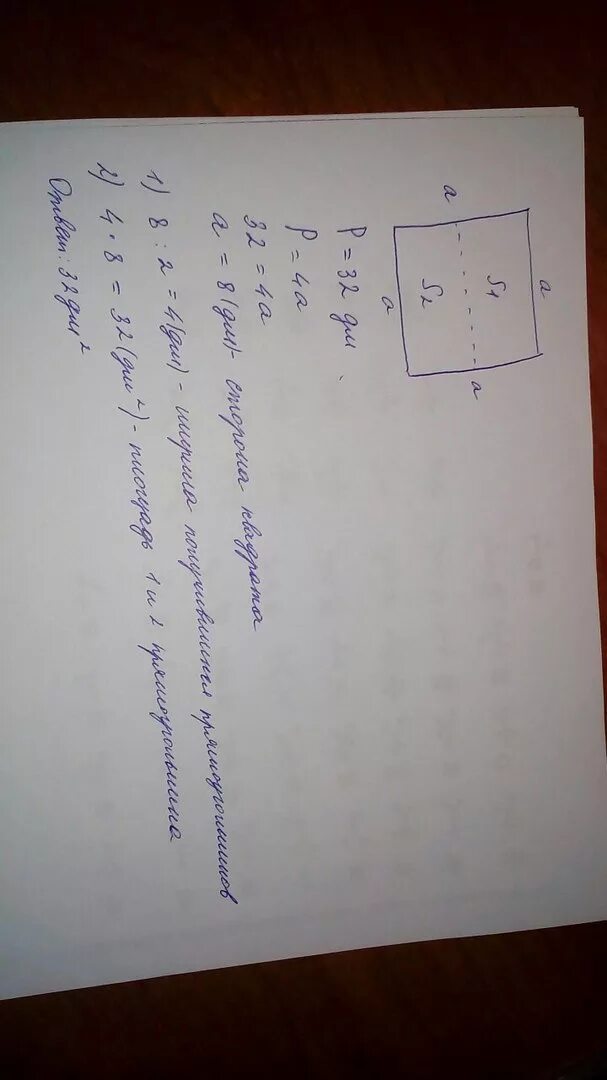 a
S1
a
a
S2
a
P = 32 дм
P = 4a
32 = 4a
a = 8 (дм) - сторона квадрата
1) 8 : 2 = 4 (дм) - ширина получившихся прямоугольников
2) 4 · 8 = 32 (дм²) - площадь 1 и 2 прямоугольника
Ответ: 32 дм²